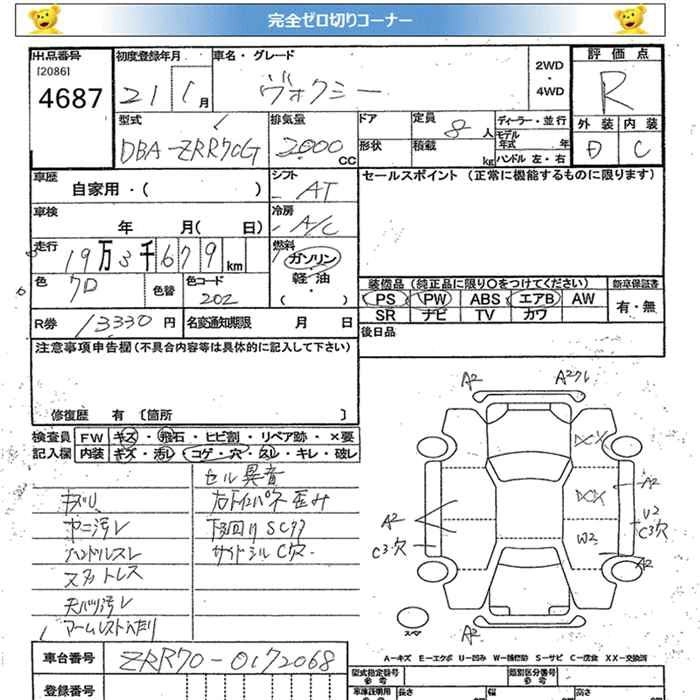 完全ゼロ切りコーナー
出品番号 初度登録年月 車名・グレード 2WD・4WD 評価点
[2086]
4687 21 1月 ヴォクシー R
外装 内装
D C
型式 排気量 ドア 定員 8人 ディーラー・並行
DBA-ZRR70G 2000cc 形状 積載 kg モデル年式 年
ハンドル 左・右
車歴 自家用・( ) シフト AT セールスポイント (正常に機能するものに限ります)
車検 年 月( 日) 冷房 A/C
走行 19万3千679km 燃料 ガソリン・軽油・( )
色 クロ 色替 色コード 202
装備品 (純正品に限り○をつけてください) 新車保証書
PS PW ABS エアB AW 有・無
SR ナビ TV カワ
R券 13330円 名変通知期限 月 日 後日品
注意事項申告欄 (不具合内容等は具体的に記入して下さい)
修復歴 有 〔箇所 〕
検査員 FW キズ・飛石・ヒビ割・リペア跡・×要
記入欄 内装 キズ・汚レ・コゲ・穴・スレ・キレ・破レ
セル異音
キズU 右リインパネ歪み
ヤニ汚レ 下廻りSCサ
ハンドルスレ サイドシルC穴
スカットレス
天バリ汚レ
アームレストヘタリ
A2 A2クレ
XX
A2 XX A2
U2
C3穴 W2 C3穴
A2
スペア A2
A-キズ E-エクボ U-凹み W-補修跡 S-サビ C-腐食 XX-交換済
車台番号 ZRR70-0172068
登録番号
型式指定番号 参考 類別区分番号 参考
長さ 幅 高さ